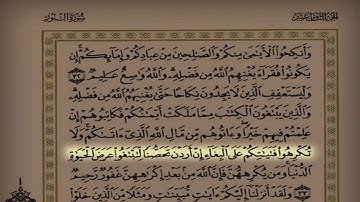 الجزء الثامن عشر
سورة النور
وَأَنكِحُوا۟ ٱلْأَيَـٰمَىٰ مِنكُمْ وَٱلصَّـٰلِحِينَ مِنْ عِبَادِكُمْ وَإِمَآئِكُمْ ۚ إِن
يَكُونُوا۟ فُقَرَآءَ يُغْنِهِمُ ٱللَّهُ مِن فَضْلِهِۦ ۗ وَٱللَّهُ وَٰسِعٌ عَلِيمٌ ٣٢
وَلْيَسْتَعْفِفِ ٱلَّذِينَ لَا يَجِدُونَ نِكَاحًا حَتَّىٰ يُغْنِيَهُمُ ٱللَّهُ مِن فَضْلِهِۦ ۗ
وَٱلَّذِينَ يَبْتَغُونَ ٱلْكِتَـٰبَ مِمَّا مَلَكَتْ أَيْمَـٰنُكُمْ فَكَاتِبُوهُمْ إِنْ
عَلِمْتُمْ فِيهِمْ خَيْرًا ۖ وَءَاتُوهُم مِّن مَّالِ ٱللَّهِ ٱلَّذِىٓ ءَاتَىٰكُمْ ۚ وَلَا
تُكْرِهُوا۟ فَتَيَـٰتِكُمْ عَلَى ٱلْبِغَآءِ إِنْ أَرَدْنَ تَحَصُّنًا لِّتَبْتَغُوا۟ عَرَضَ ٱلْحَيَوٰةِ
ٱلدُّنْيَا ۚ وَمَن يُكْرِههُّنَّ فَإِنَّ ٱللَّهَ مِنۢ بَعْدِ إِكْرَٰهِهِنَّ غَفُورٌ رَّحِيمٌ
٣٣ وَلَقَدْ أَنزَلْنَآ إِلَيْكُمْ ءَايَـٰتٍ مُّبَيِّنَـٰتٍ وَمَثَلًا مِّنَ ٱلَّذِينَ خَلَوْا۟